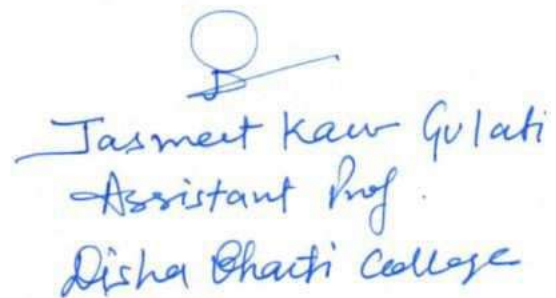 Jasmeet Kaur Gulati
Assistant Prof.
Disha Bharti College